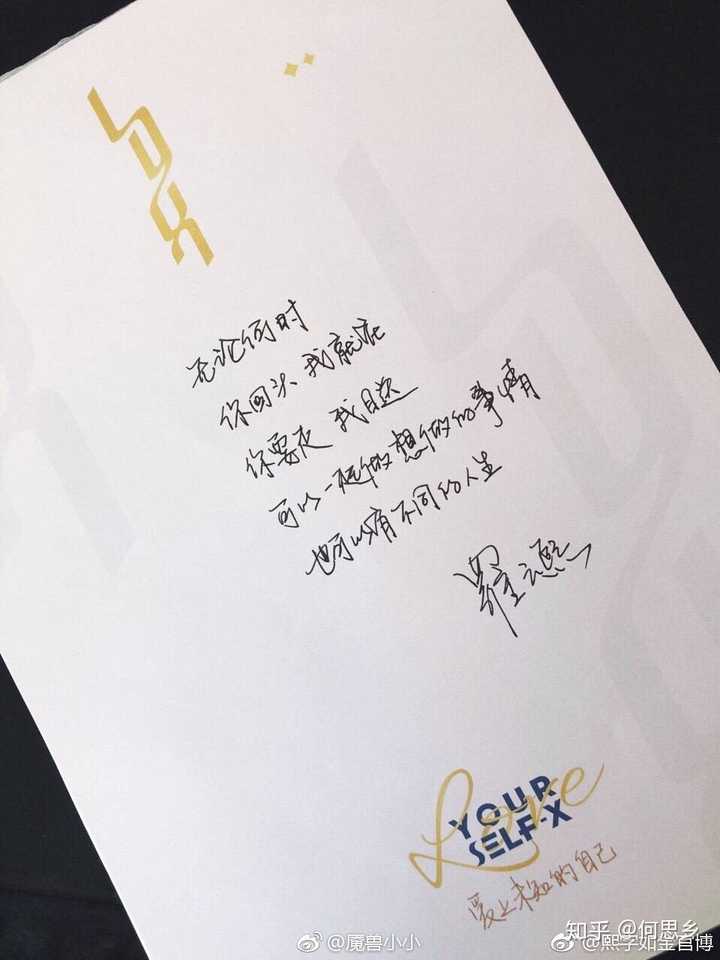 无论何时
你回头 我就在
你要走 我目送
可以一起做想做的事情
也可以有不同的人生
罗云熙
Love
YOUR
SELF-X
爱上未知的自己
知乎 @何思乡
@魇兽小小
@熙字如金官博